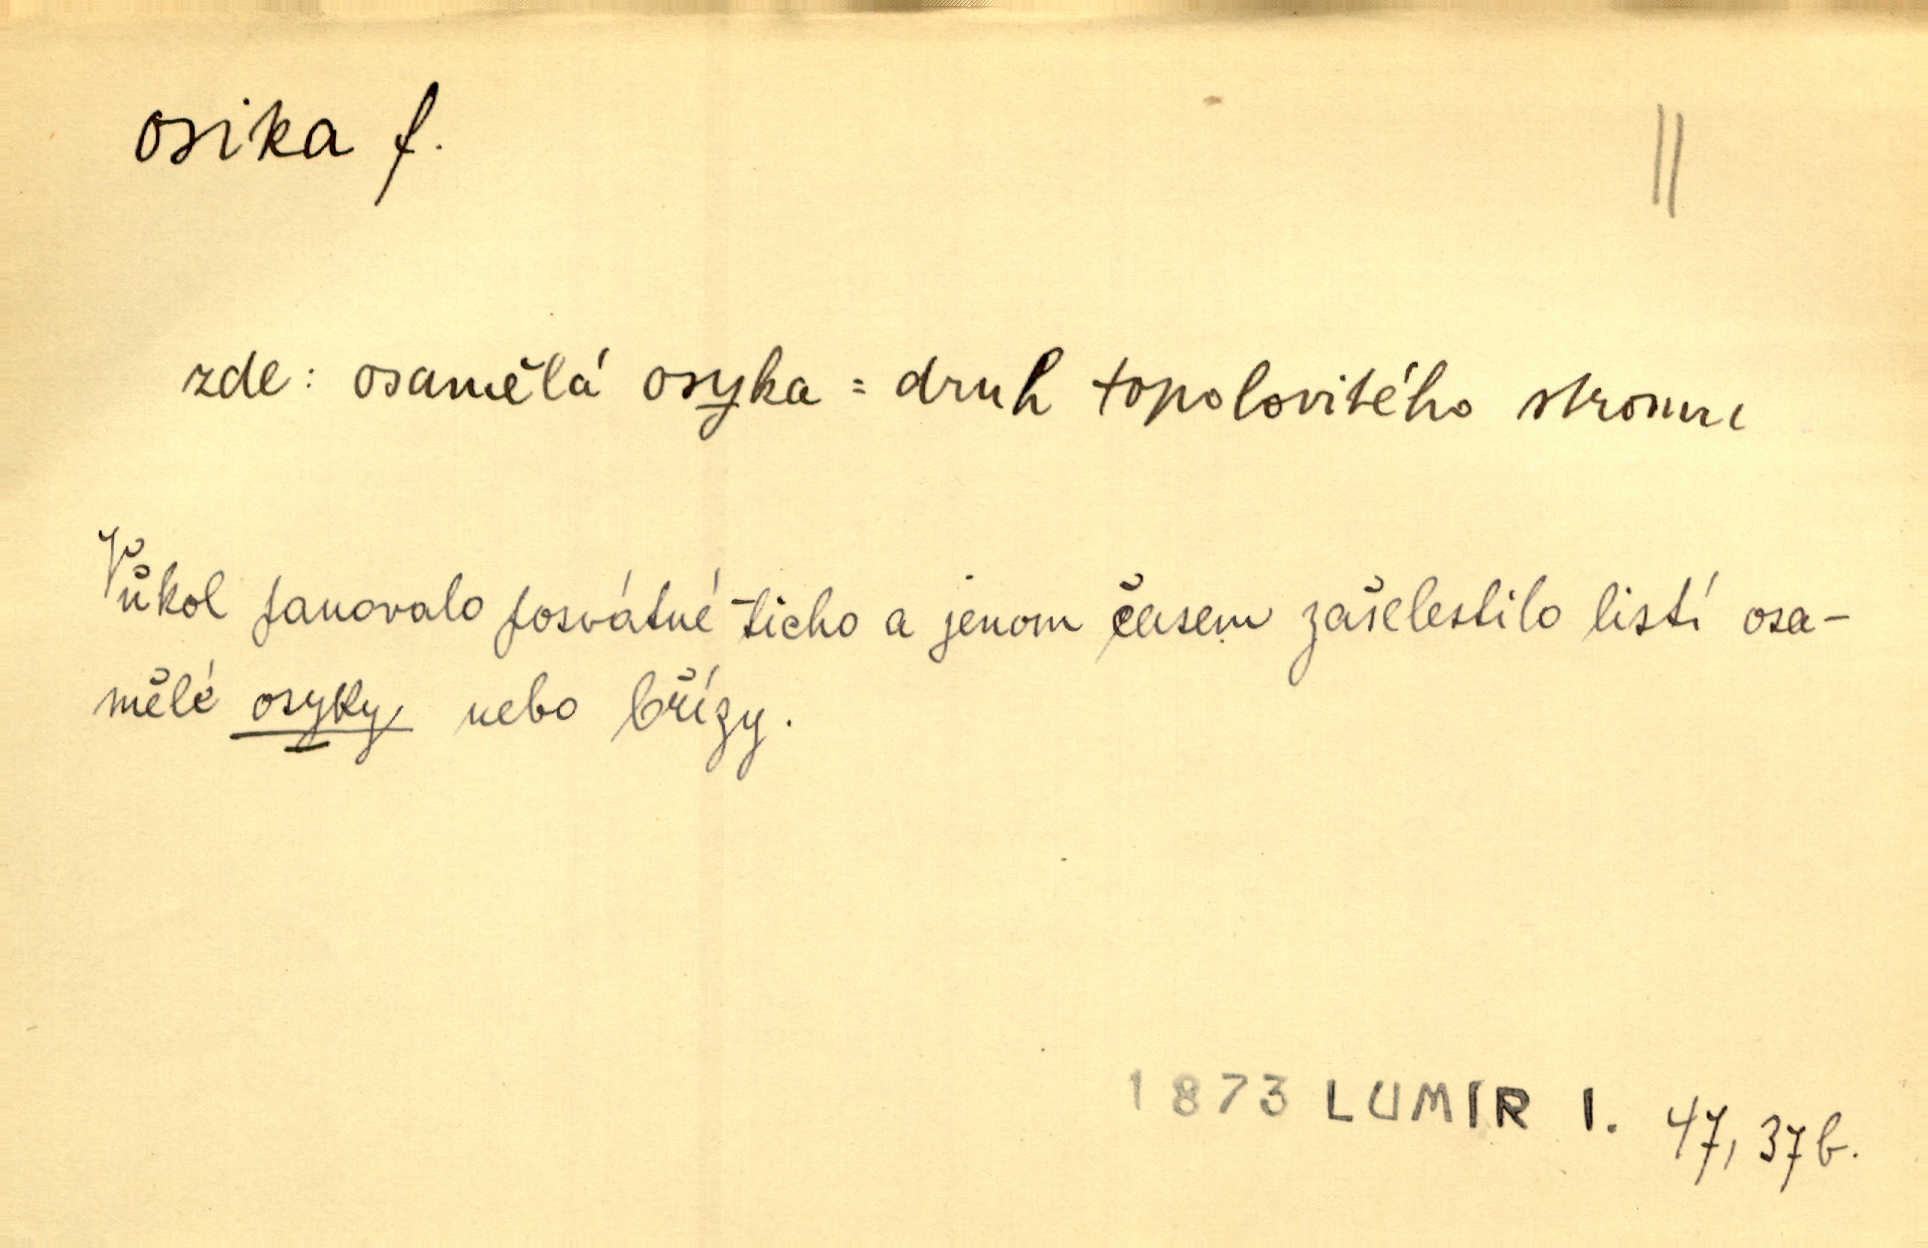 osika f.
||
zde: osamělá osyka = druh topolovitého stromu
Vůkol panovalo posvátné ticho a jenom časem zašelestilo listí osa-
mělé osyky nebo břízy.
1873 LUMÍR I. 47, 37 b.